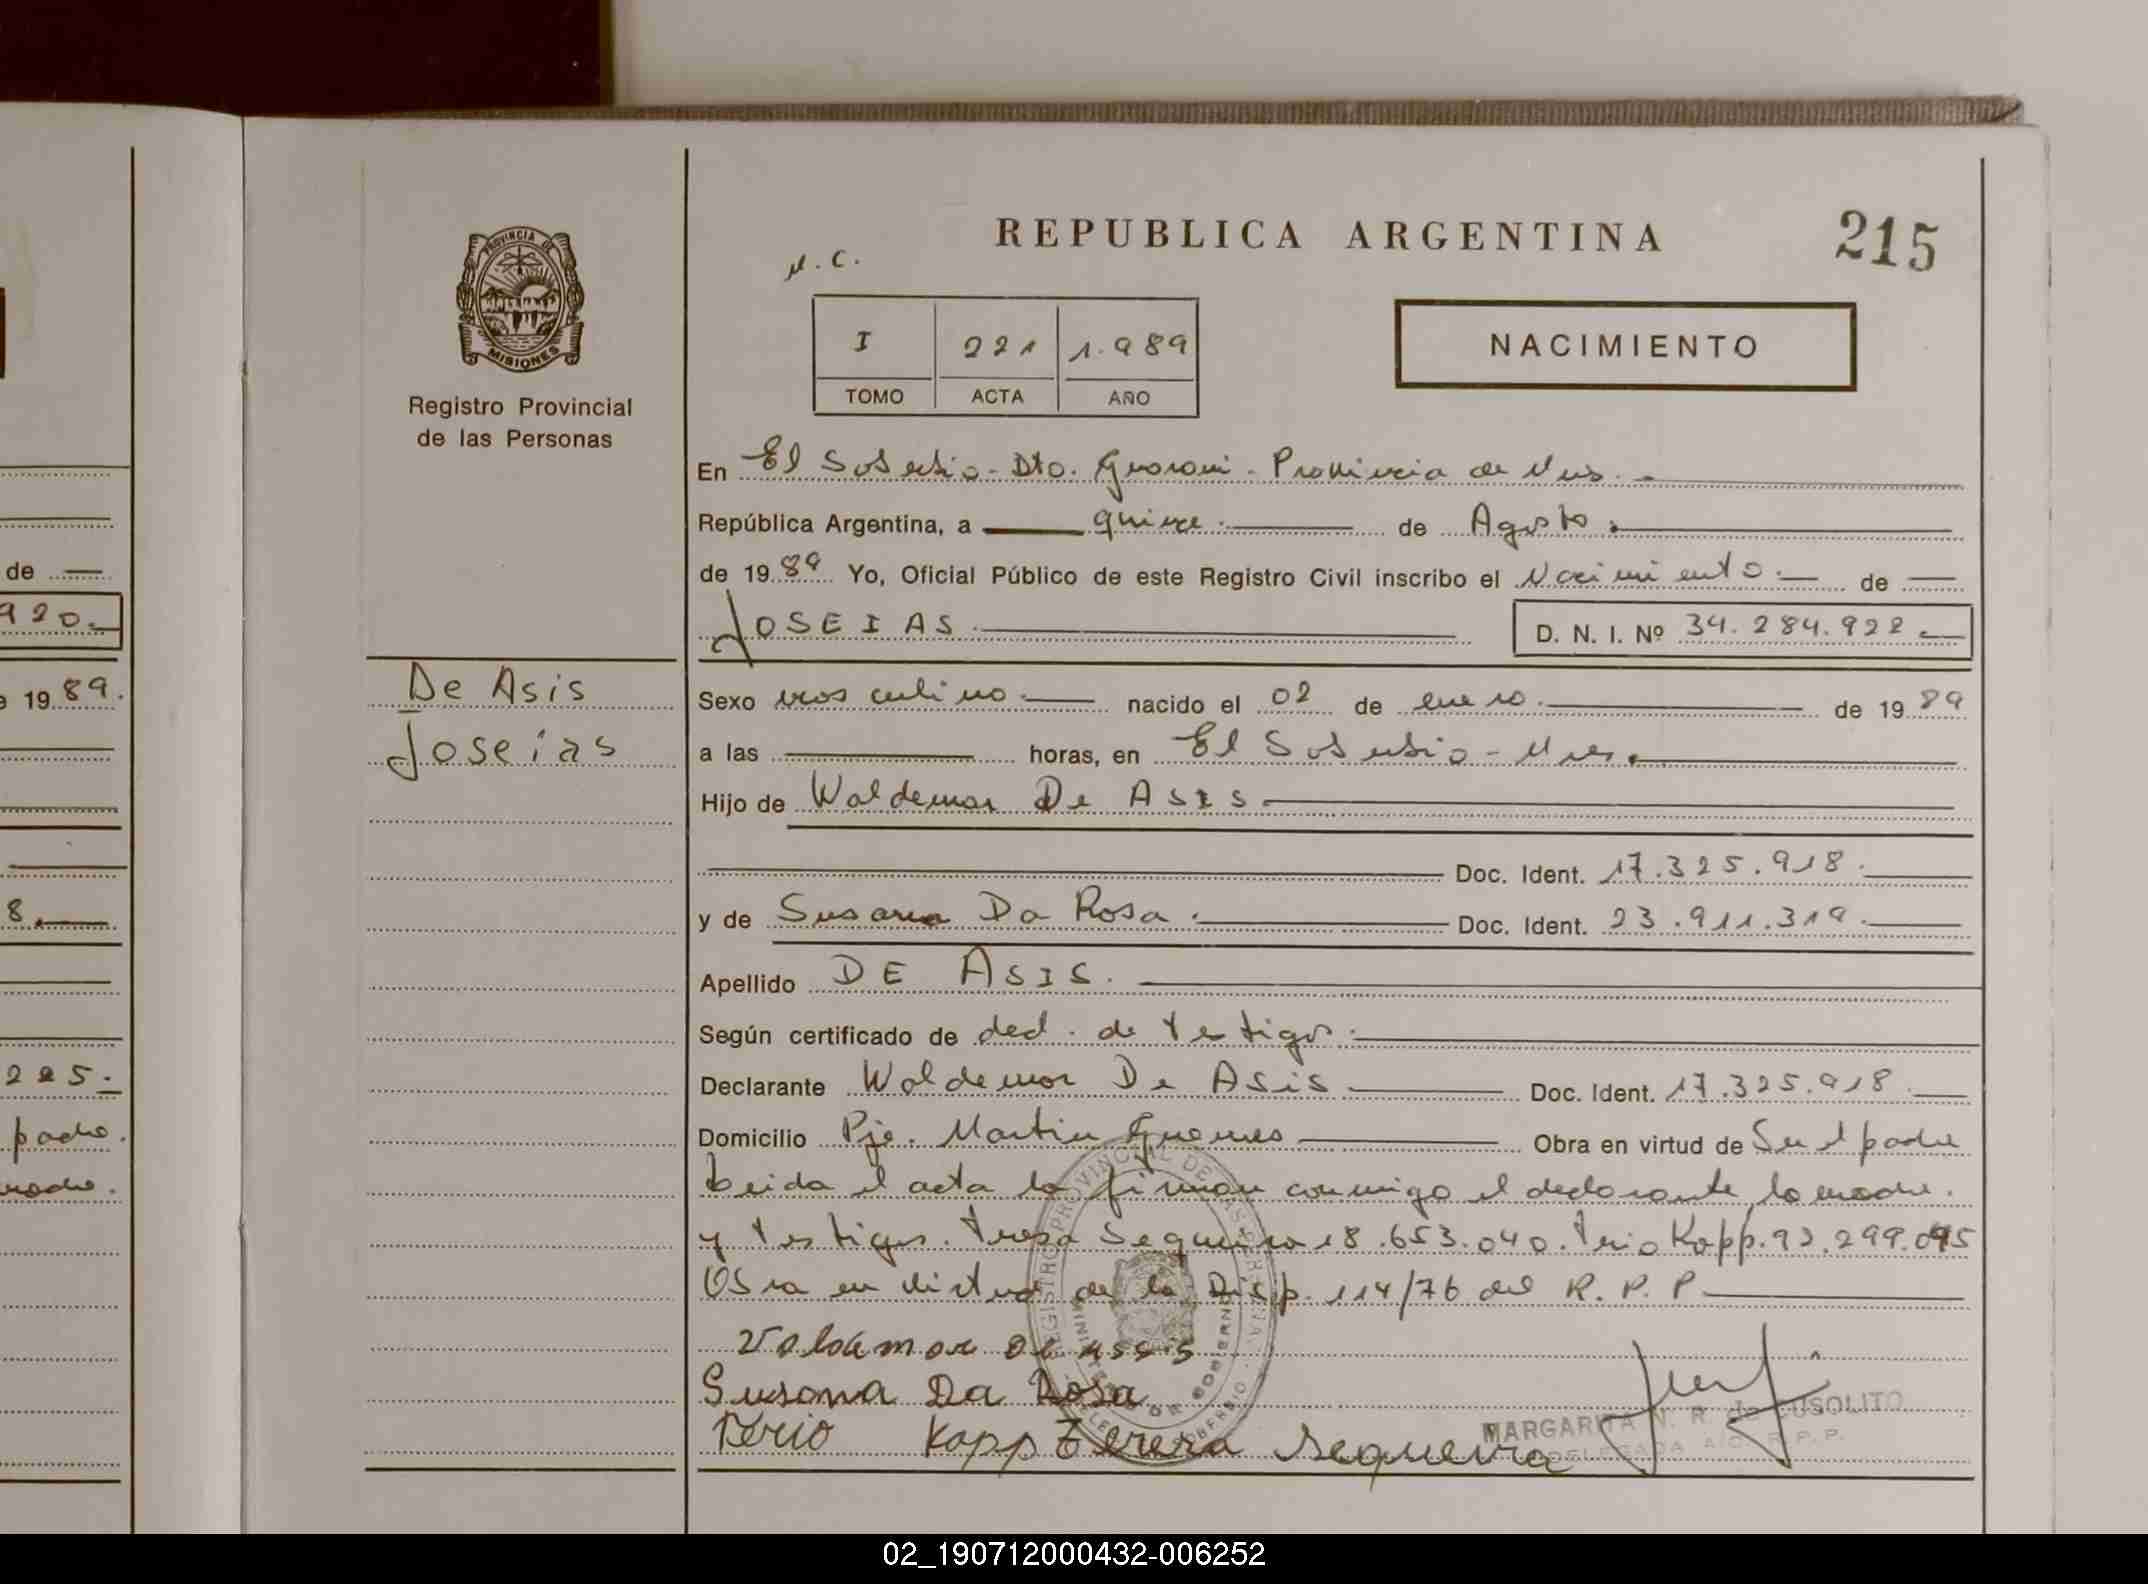 REPUBLICA ARGENTINA
215
N. C.
PROVINCIA DE
MISIONES
Registro Provincial
de las Personas
I 221 1.989
TOMO ACTA AÑO
NACIMIENTO
En El Soberbio - Dto. Guarani - Provincia de Mnes. -
República Argentina, a quince. de Agosto.
de 1989 Yo, Oficial Público de este Registro Civil inscribo el Nacimiento. de
JOSEIAS. D. N. I. Nº 34.284.922
De Asis
Joseias
Sexo masculino. nacido el 02 de enero. de 1989
a las horas, en El Soberbio - Mnes.
Hijo de Waldemar De ASIS
Doc. Ident. 17.325.918.
y de Susana Da Rosa. Doc. Ident. 23.911.319.
Apellido DE ASIS.
Según certificado de decl. de testigos.
Declarante Waldemar De ASis Doc. Ident. 17.325.918.
Domicilio Pje. Martin Guemes Obra en virtud de Ser el padre
Leida el acta la firman conmigo el declarante la madre.
y testigos. Sequeira 18.653.040. Kapp. 92.299.095
Obra en virtud de la Disp. 114/76 del R. P. P.
Susana Da Rosa
Kapp Sequeira
MARGARITA N. R. de CUSOLITO
DELEGADA R. P. P.
de
920.
1989.
8.
225.
padre.
madre.
02_190712000432-006252